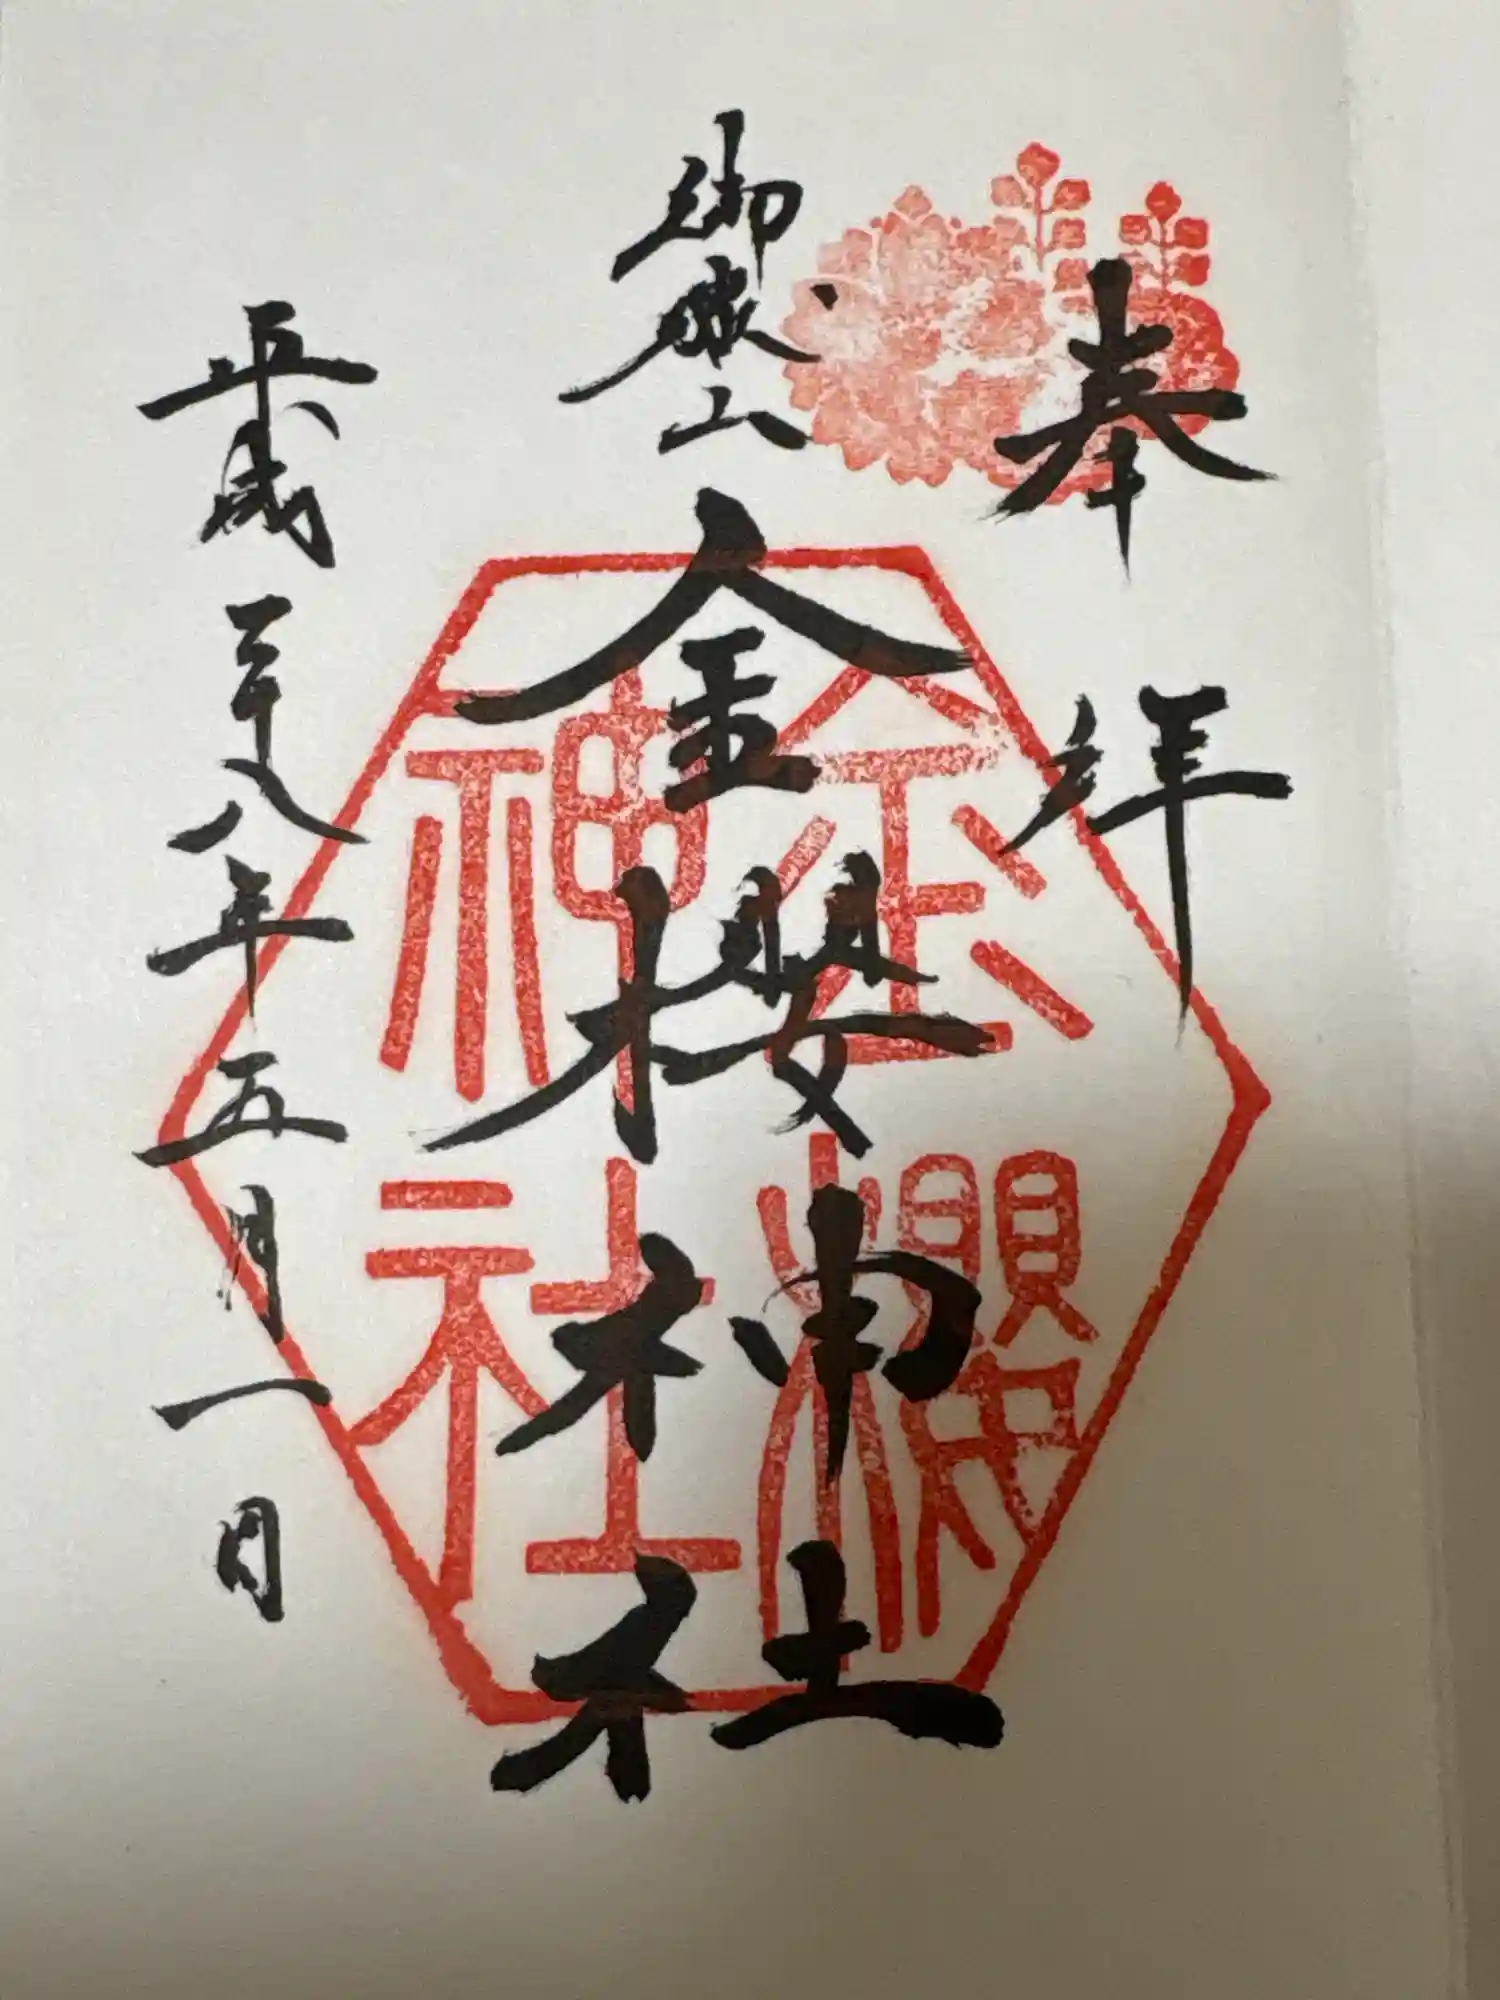 奉拝
御嶽山
金櫻神社
金櫻神社
平成二十八年五月一日